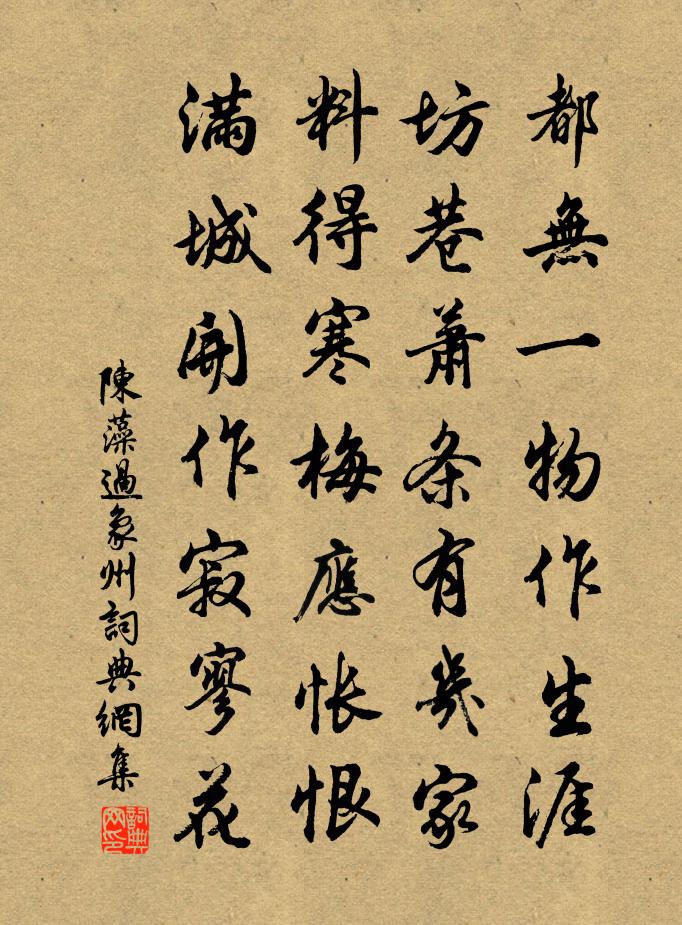 都無一物作生涯
坊巷蕭条有幾家
料得寒梅應悵恨
滿城開作寂寥花
陳藻過象州詞典網集
詞典
网印